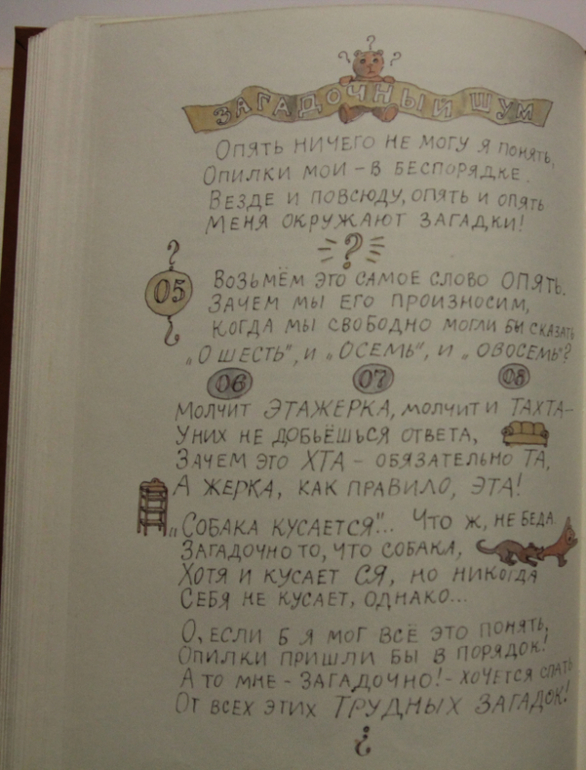 ?
? ?
ЗАГАДОЧНЫЙ ШУМ
ОПЯТЬ НИЧЕГО НЕ МОГУ Я ПОНЯТЬ,
ОПИЛКИ МОИ – В БЕСПОРЯДКЕ.
ВЕЗДЕ И ПОВСЮДУ, ОПЯТЬ И ОПЯТЬ
МЕНЯ ОКРУЖАЮТ ЗАГАДКИ!
?
?
05
?
ВОЗЬМЁМ ЭТО САМОЕ СЛОВО ОПЯТЬ.
ЗАЧЕМ МЫ ЕГО ПРОИЗНОСИМ,
КОГДА МЫ СВОБОДНО МОГЛИ БЫ СКАЗАТЬ
„ОШЕСТЬ", И „ОСЕМЬ", И „ОВОСЕМЬ"?
06 07 08
МОЛЧИТ ЭТАЖЕРКА, МОЛЧИТ И ТАХТА –
У НИХ НЕ ДОБЬЁШЬСЯ ОТВЕТА,
ЗАЧЕМ ЭТО ХТА – ОБЯЗАТЕЛЬНО ТА,
А ЖЕРКА, КАК ПРАВИЛО, ЭТА!
„СОБАКА КУСАЕТСЯ"... ЧТО Ж, НЕ БЕДА.
ЗАГАДОЧНО ТО, ЧТО СОБАКА,
ХОТЯ И КУСАЕТ СЯ, НО НИКОГДА
СЕБЯ НЕ КУСАЕТ, ОДНАКО...
О, ЕСЛИ Б Я МОГ ВСЁ ЭТО ПОНЯТЬ,
ОПИЛКИ ПРИШЛИ БЫ В ПОРЯДОК!
А ТО МНЕ – ЗАГАДОЧНО! – ХОЧЕТСЯ СПАТЬ
ОТ ВСЕХ ЭТИХ ТРУДНЫХ ЗАГАДОК!
¿